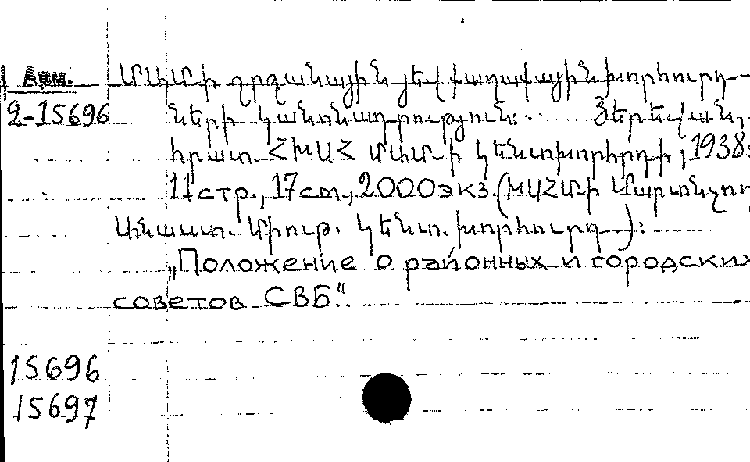 Арм. ՄԱՄԻ շրջանային յեվ քաղաքային խորհուրդ-
2-15696 ների կանոնադրություն: Յերեվան,
հրատ. ՀԽՍՀ ՄԱՄ-ի կենտխորհրդի, 1938:
11 стр., 17 см., 2000 экз. (ԽՍՀՄԻ
Անաստ. Միութ. Կենտ. խորհուրդ):
„Положение о районных и городских
советов СВБ".
15696
15697